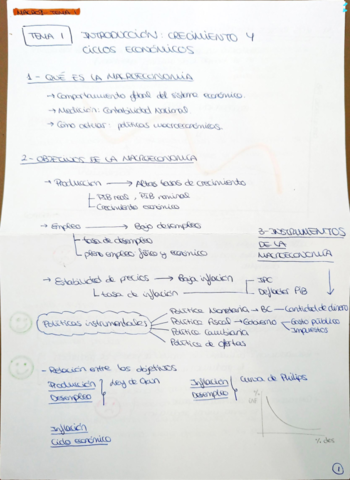 MACRO: TEMA 1
TEMA 1 INTRODUCCIÓN: CRECIMIENTO Y
CICLOS ECONÓMICOS
1- QUÉ ES LA MACROECONOMÍA
→ Comportamiento global del sistema económico.
→ Medición: Contabilidad Nacional
→ Cómo actuar: políticas macroeconómicas.
2- OBJETIVOS DE LA MACROECONOMÍA
→ Producción → Altas tasas de crecimiento
PIB real, PIB nominal
Crecimiento económico
→ Empleo → Bajo desempleo
tasa de desempleo
pleno empleo físico y económico
→ Estabilidad de precios → Baja inflación
tasa de inflación
IPC
Deflactor PIB
3- INSTRUMENTOS
DE LA
MACROECONOMÍA
Políticas instrumentales
Política Monetaria → BC → Cantidad de dinero
Política Fiscal → Gobierno
Gasto público
Impuestos
Política Cambiaria
Política de ofertas
- Relación entre los objetivos
Producción
Desempleo
Ley de Okun
Inflación
Desempleo
Curva de Philips
Inflación
Ciclo económico
1